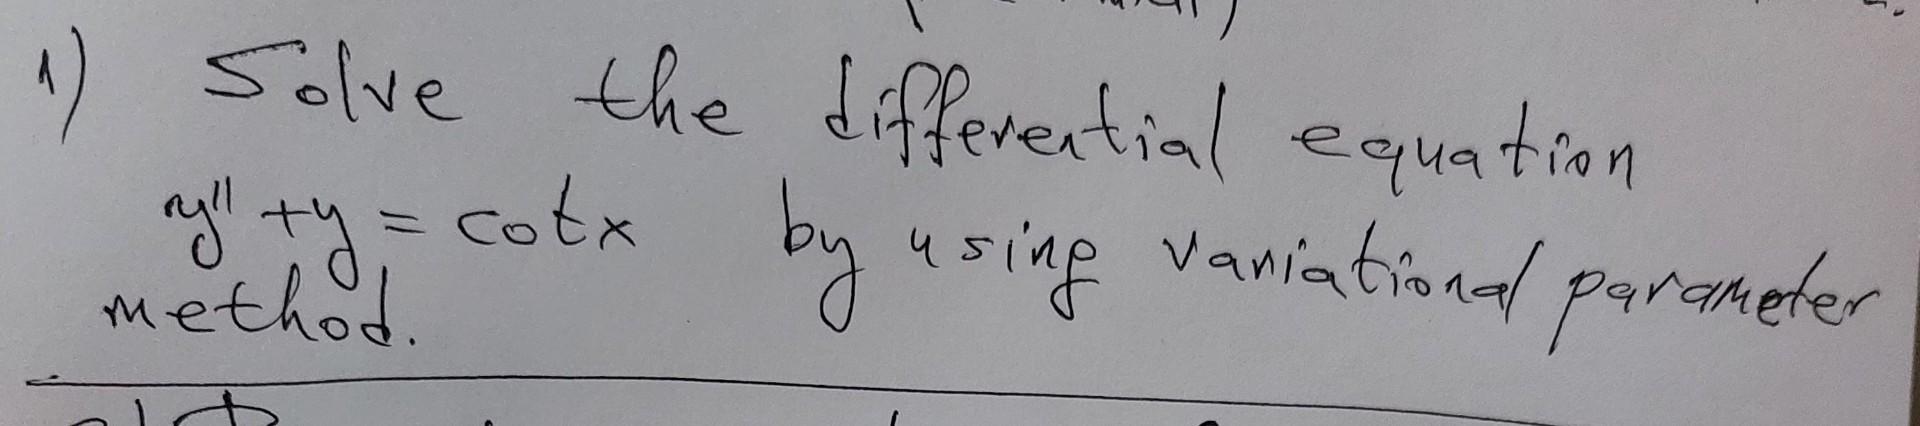 1) Solve the differential equation
y'' + y = cotx by using variational parameter
method.